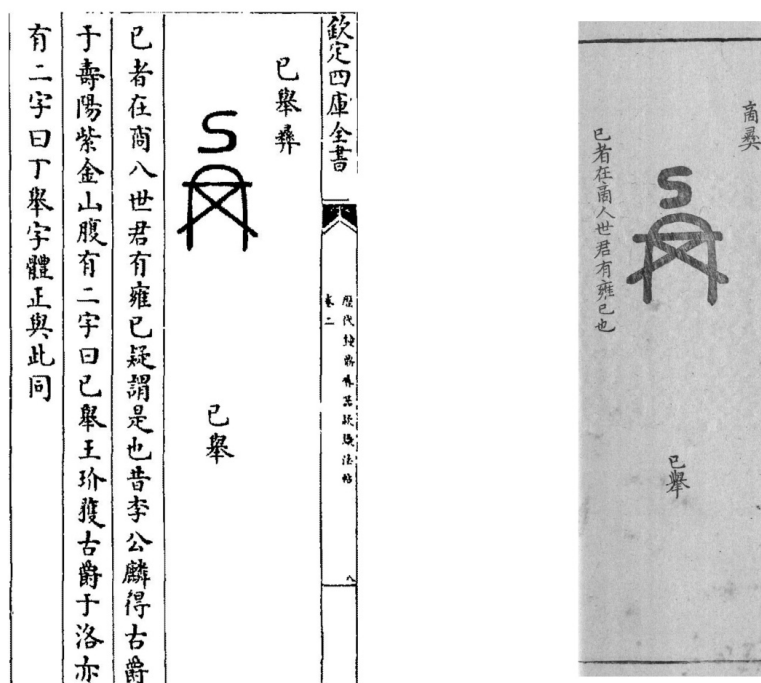 欽定四庫全書
卷二
歷代鐘鼎彝器款識法帖
八
已舉彝
已舉
已者在商八世君有雍已疑謂是也昔李公麟得古爵
于壽陽紫金山腹有二字曰已舉王玠獲古爵于洛亦
有二字曰丁舉字體正與此同
商彛
已舉
已者在商人世君有雍已也